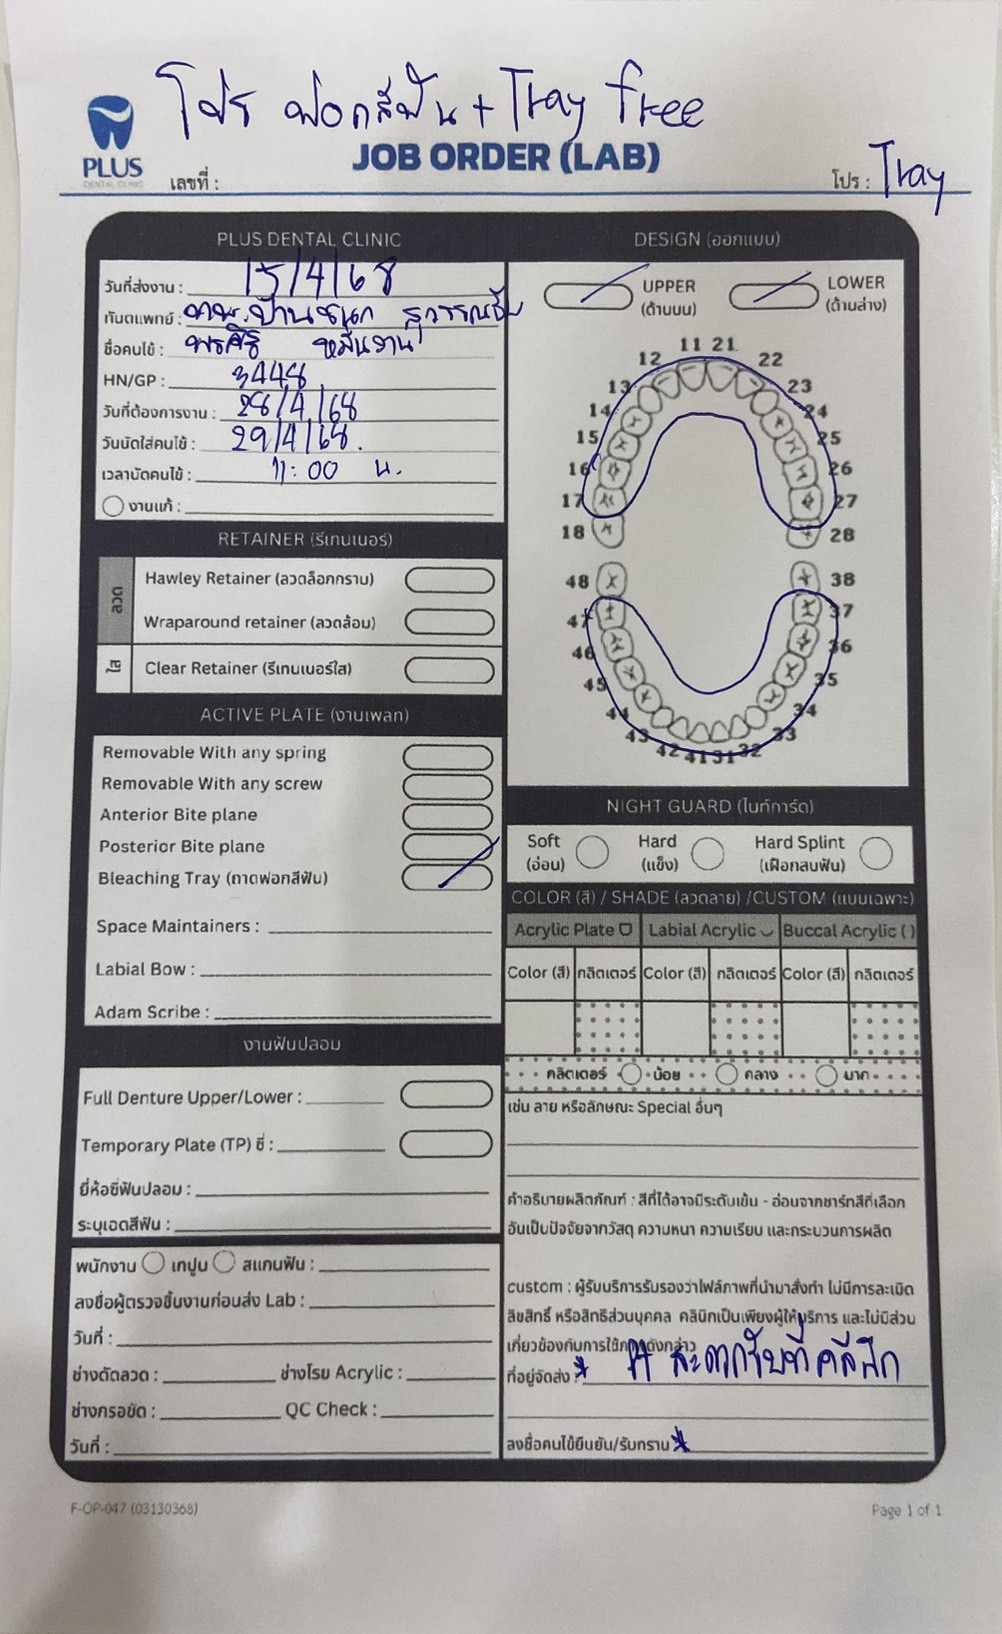 โปร ฟอกสีฟัน + Tray free
PLUS
DENTAL CLINIC
JOB ORDER (LAB)
เลขที่ :
โปร : Tray
PLUS DENTAL CLINIC
วันที่ส่งงาน : 15/4/68
ทันตแพทย์ : ทพ.ปานชนก
ชื่อคนไข้ : พรศิริ
HN/GP : 3448
วันที่ต้องการงาน : 28/4/68
วันนัดใส่คนไข้ : 29/4/68.
เวลานัดคนไข้ : 11:00 น.
งานแก้ :
RETAINER (รีเทนเนอร์)
ลวด
Hawley Retainer (ลวดล็อกกราบ)
Wraparound retainer (ลวดล้อม)
ใส
Clear Retainer (รีเทนเนอร์ใส)
ACTIVE PLATE (งานเพลท)
Removable With any spring
Removable With any screw
Anterior Bite plane
Posterior Bite plane
Bleaching Tray (ถาดฟอกสีฟัน)
Space Maintainers :
Labial Bow :
Adam Scribe :
งานฟันปลอม
Full Denture Upper/Lower :
Temporary Plate (TP) ซี่ :
ยี่ห้อซี่ฟันปลอม :
ระบุเฉดสีฟัน :
พนักงาน เทปูน สแกนฟัน :
ลงชื่อผู้ตรวจชิ้นงานก่อนส่ง Lab :
วันที่ :
ช่างดัดลวด : ช่างโรย Acrylic :
ช่างกรอขัด : QC Check :
วันที่ :
DESIGN (ออกแบบ)
UPPER LOWER
(ด้านบน) (ด้านล่าง)
11 21
12 22
13 23
14 24
15 25
16 26
17 27
18 28
48 38
47 37
46 36
45 35
44 34
43 33
42 41 31 32
NIGHT GUARD (ไนท์การ์ด)
Soft Hard Hard Splint
(อ่อน) (แข็ง) (เฝือกสบฟัน)
COLOR (สี) / SHADE (ลวดลาย) /CUSTOM (แบบเฉพาะ)
Acrylic Plate Labial Acrylic Buccal Acrylic ( )
Color (สี) กลิตเตอร์ Color (สี) กลิตเตอร์ Color (สี) กลิตเตอร์
กลิตเตอร์ น้อย กลาง มาก
เช่น ลาย หรือลักษณะ Special อื่นๆ
คำอธิบายผลิตภัณฑ์ : สีที่ได้อาจมีระดับเข้ม - อ่อนจากชาร์ทสีที่เลือก
อันเป็นปัจจัยจากวัสดุ ความหนา ความเรียบ และกระบวนการผลิต
custom : ผู้รับบริการรับรองว่าไฟล์ภาพที่นำมาสั่งทำ ไม่มีการละเมิด
ลิขสิทธิ์ หรือสิทธิส่วนบุคคล คลินิกเป็นเพียงผู้ให้บริการ และไม่มีส่วน
เกี่ยวข้องกับการใช้ภาพดังกล่าว
ที่อยู่จัดส่ง : * สะดวกรับที่คลีนิก
ลงชื่อคนไข้ยืนยัน/รับทราบ *
F-OP-047 (03130368)
Page 1 of 1